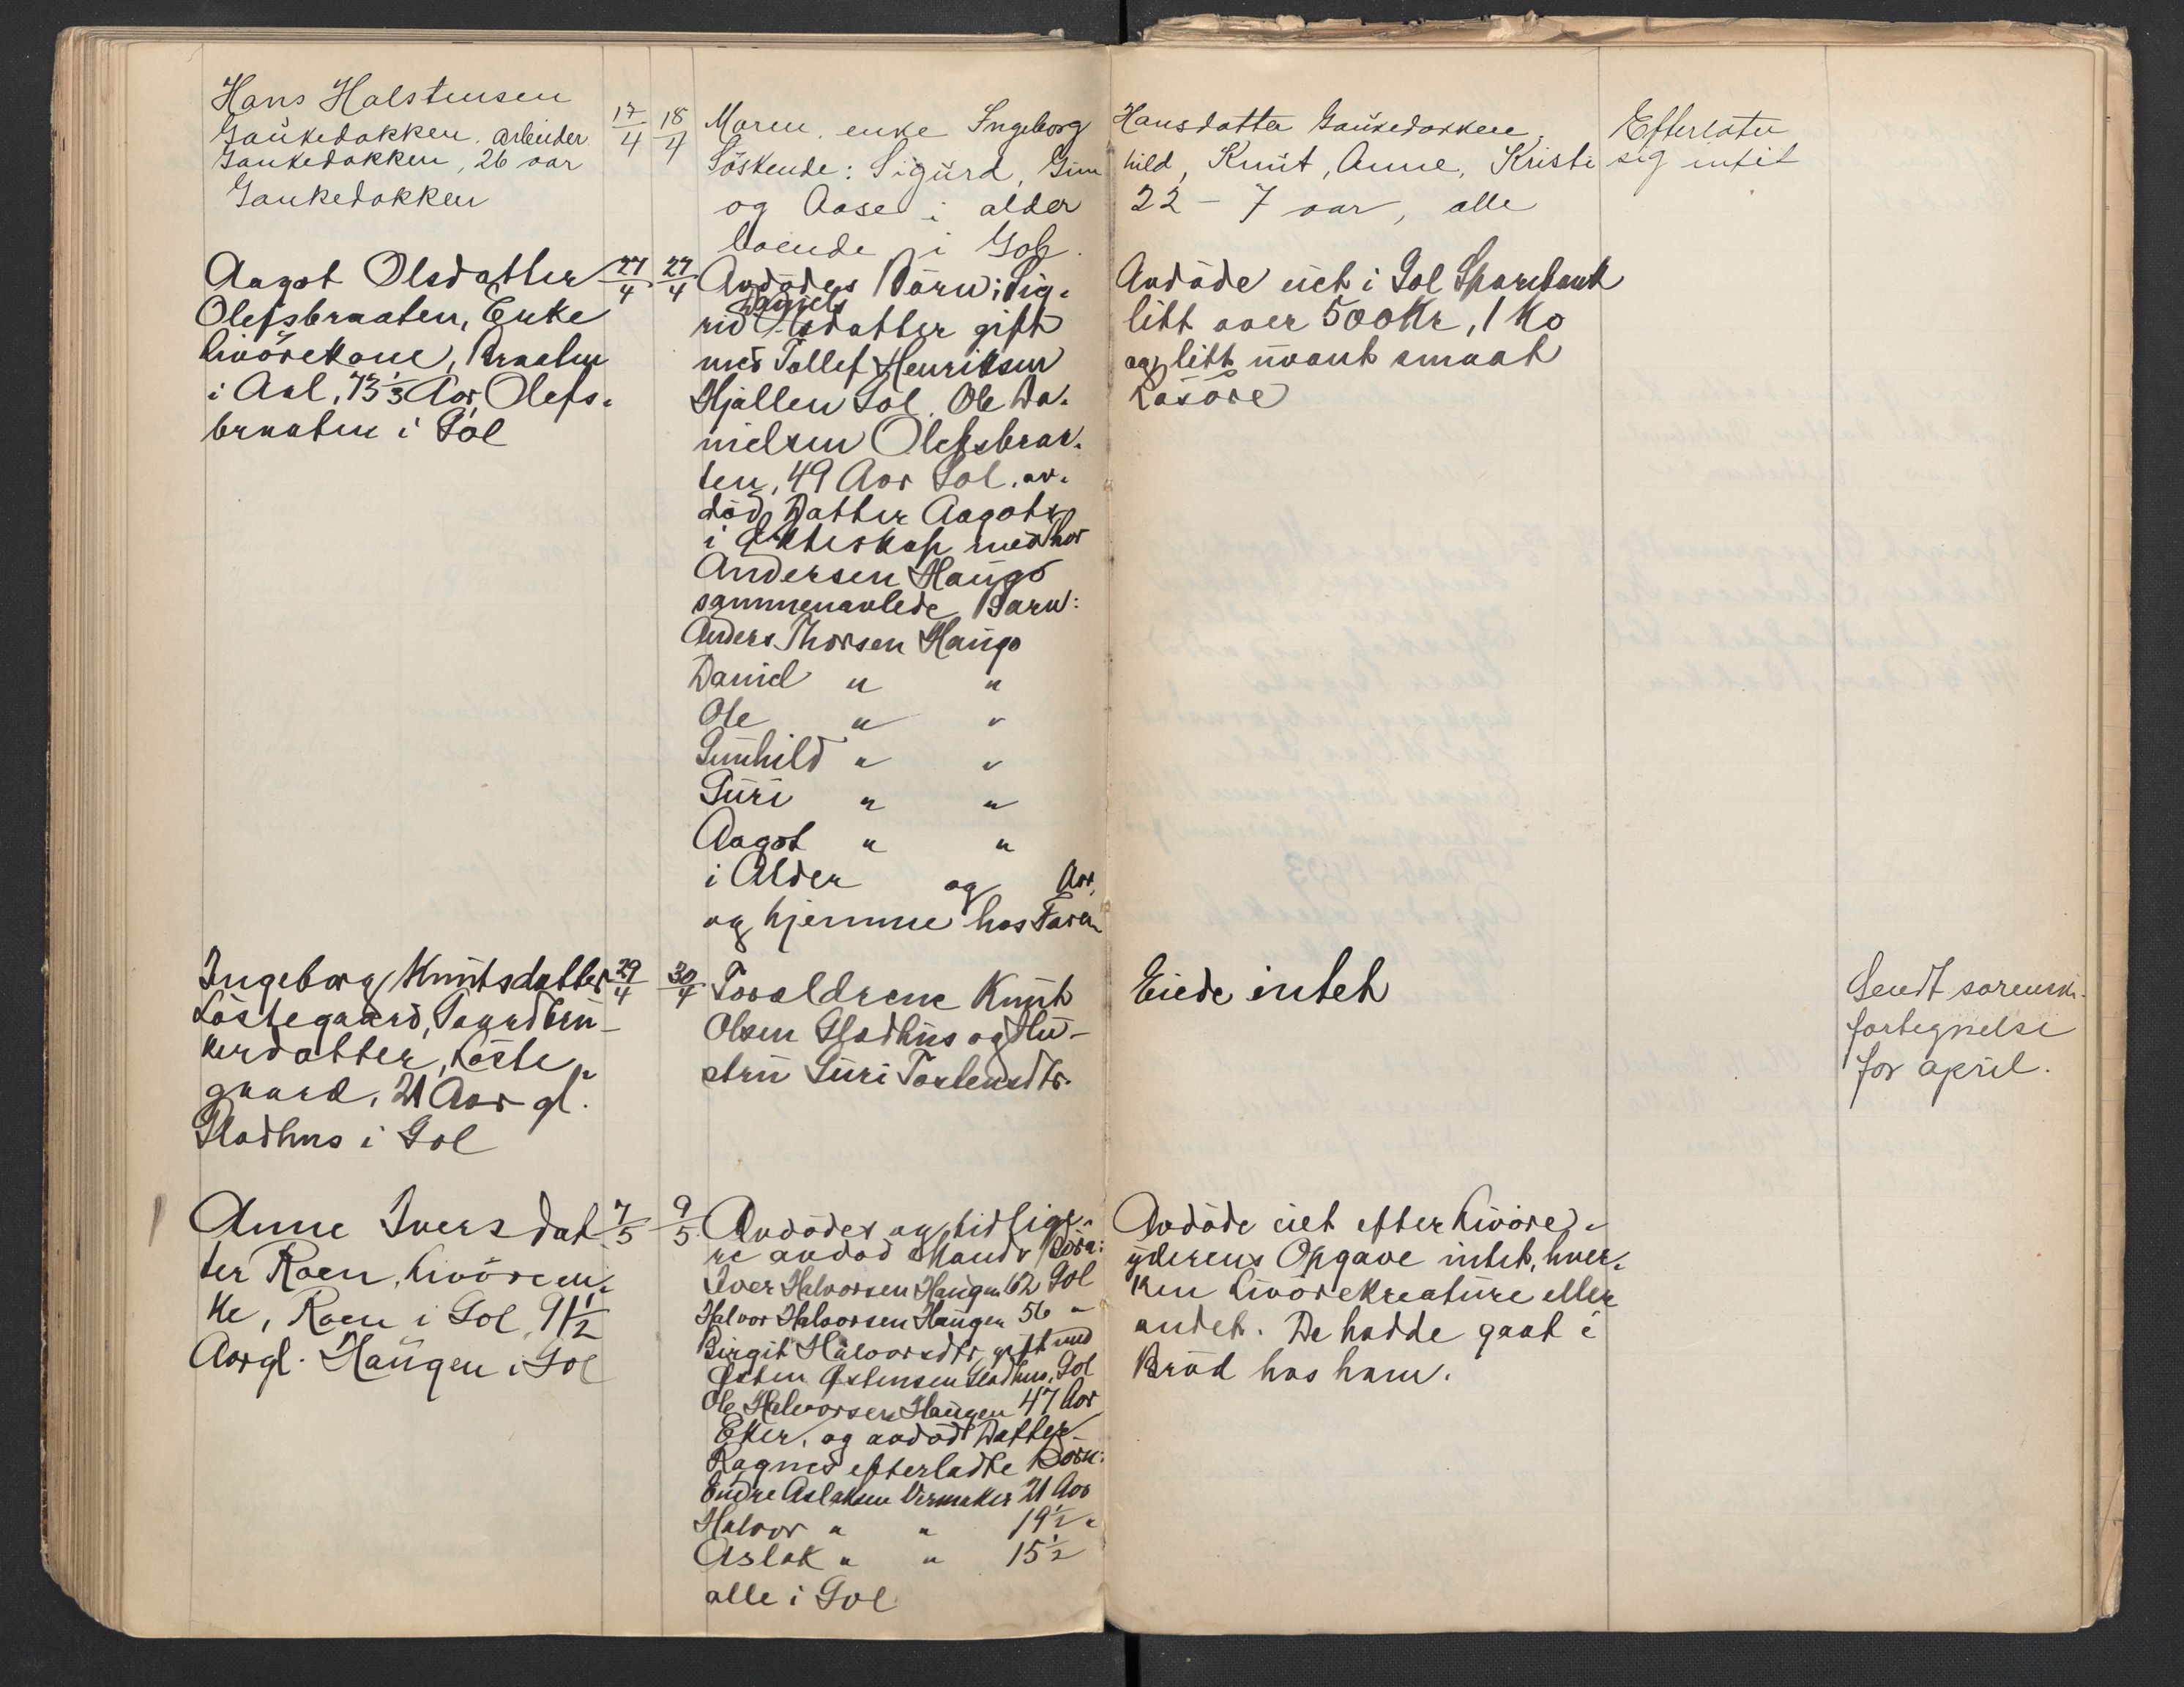 Hans Halstensen
Gaukedokken. Arbeider
Gaukedokken, 26 aar
Gaukedokken
17/4 18/4
Moren, enke Ingeborg Hansdatter Gaukedokken.
Söskende: Sigurd, Gunhild, Knut, Anne, Kristi
og Aase i alder 22 - 7 aar, alle
boende i Gol.
Efterlater
sig intit
Aagot Olsdatter
Olefsbraaten, Enke
Livörekone, Braaten
i Aal, 73 1/3 Aar, Olefs-
braaten i Gol
27/4 27/4
Avdödes Börn: Sig-
Daniels
rid Olsdatter gift
med Tollef Henriksen
Hjallen Gol. Ole Da-
nielsen Olefsbraa-
ten, 49 Aar Gol, av-
död Datter Aagots
i Ekteskap med Thor
Andersen Haugo
sammenavlede Barn:
Anders Thorsen Haugo
Daniel " "
Ole " "
Gunhild " "
Guri " "
Aagot " "
i Alder og Aar,
og hjemme hos Faren
Avdöde eiet i Gol Sparebank
litt over 500 Kr, 1 Ko
og litt uvant smaat
Lösöre
Ingeborg Knutsdatter
Löstegaard, Gaardbru-
kerdatter, Löste-
gaard, 21 Aar gl.
Gladhus i Gol
29/4 30/4
Foreldrene Knut
Olsen Gladhus og Hu-
stru Guri Tostensdtr.
Eiede intet
Sendt sorensk.
fortegnelse
for april.
Anne Iversdat-
ter Roen, Livören-
ke, Roen i Gol, 91 1/2
Aar gl. Haugen i Gol
7/5 9/5
Avdödes og tidlige-
re avdöd Mands Börn:
Iver Halvorsen Haugen 62 Gol
Halvor Halvorsen Haugen 56 "
Birgit Halvorsdtr, gift med
Østen Østensen Gladhus, Gol
Ole Halvorsen Haugen 47 Aar
Eker, og avdöd Datter
Ragnes efterladte Börn:
Endre Aslaksen Vermaker 21 Aar
Halvor " " 19 1/2 "
Aslak " " 15 1/2
alle i Gol
Avdöde eiet efter Livöre-
yderens Opgave intet, hver-
ken Livörekreature eller
andet. De hadde gaat i
Bröd hos ham.